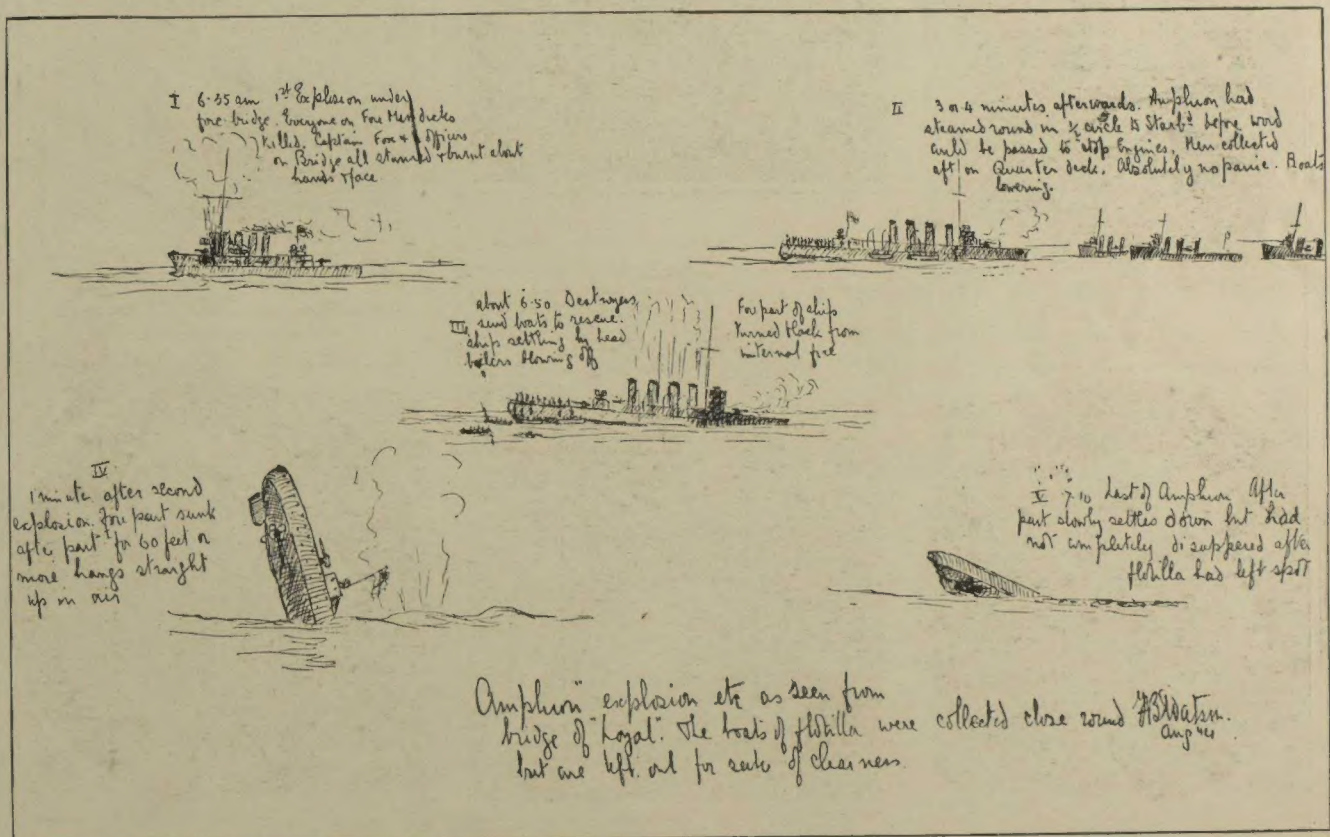 I 6.35 am 1st Explosion under
fore bridge. Everyone on Fore Mess decks
killed. Captain Fox & officers
on Bridge all stunned & burnt about
hands & face
II 3 or 4 minutes afterwards. Amphion had
steamed round in ½ circle to Starbd before word
could be passed to stop Engines. Men collected
aft on Quarter deck. Absolutely no panic. Boats
lowering.
about 6.50 Destroyers
III send boats to rescue.
ship settling by head
boilers blowing off
For part of ship
turned black from
internal fire
IV
1 minute after second
explosion. Fore part sunk
after part for 60 feet or
more hangs straight
up in air
V 7.10 Last of Amphion After
part slowly settles down but had
not completely disappered after
flotilla had left spot
Amphion" explosion etc as seen from
bridge of "Loyal". The boats of flotilla were collected close round
but are left out for sake of clearness.
Watson.
Aug